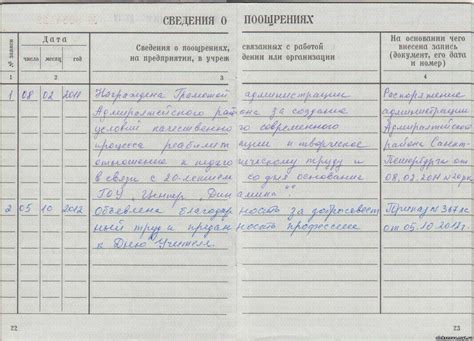 СВЕДЕНИЯ О ПООЩРЕНИЯХ
№ записи
Дата
число месяц год
Сведения о поощрениях, связанных с работой
на предприятии, в учреждении или организации
На основании чего
внесена запись
(документ, его дата
и номер)
1 2 3 4
1 08 02 2011 Награждена Грамотой администрации Распоряжение
Адмиралтейского района за создание администрации
условий качественного современного Адмиралтейского
процесса реабилитации и творческое района Санкт-
отношение к педагогическому труду и Петербурга от
в связи с 20-летием со дня основания 08.02.2011
ГОУ Центр "Динамика".
2 05 10 2012 Объявлена благодарность за добросовест Приказ № 367кс
ный труд и преданность профессии от 05.10.2012г
к Дню Учителя
22
23